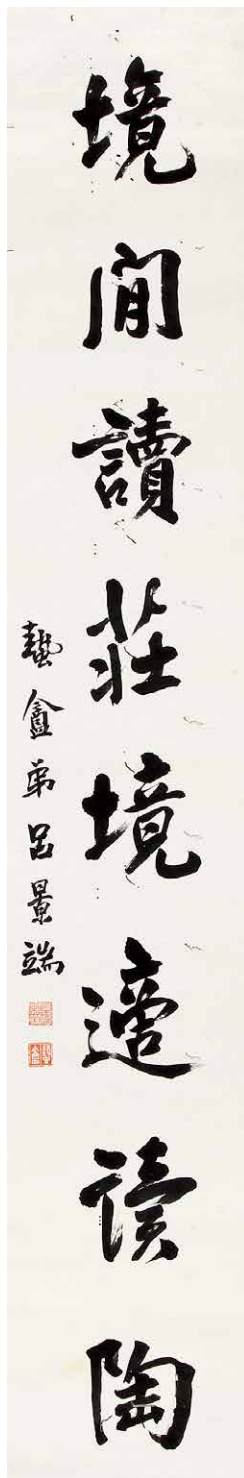 境閒讀莊境適读陶
蟄盦弟呂景端